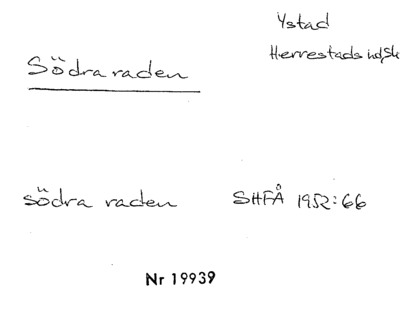 Ystad
Herrestads hd, Sk
Södra raden
södra raden SHFÅ 1952:66
Nr 19939